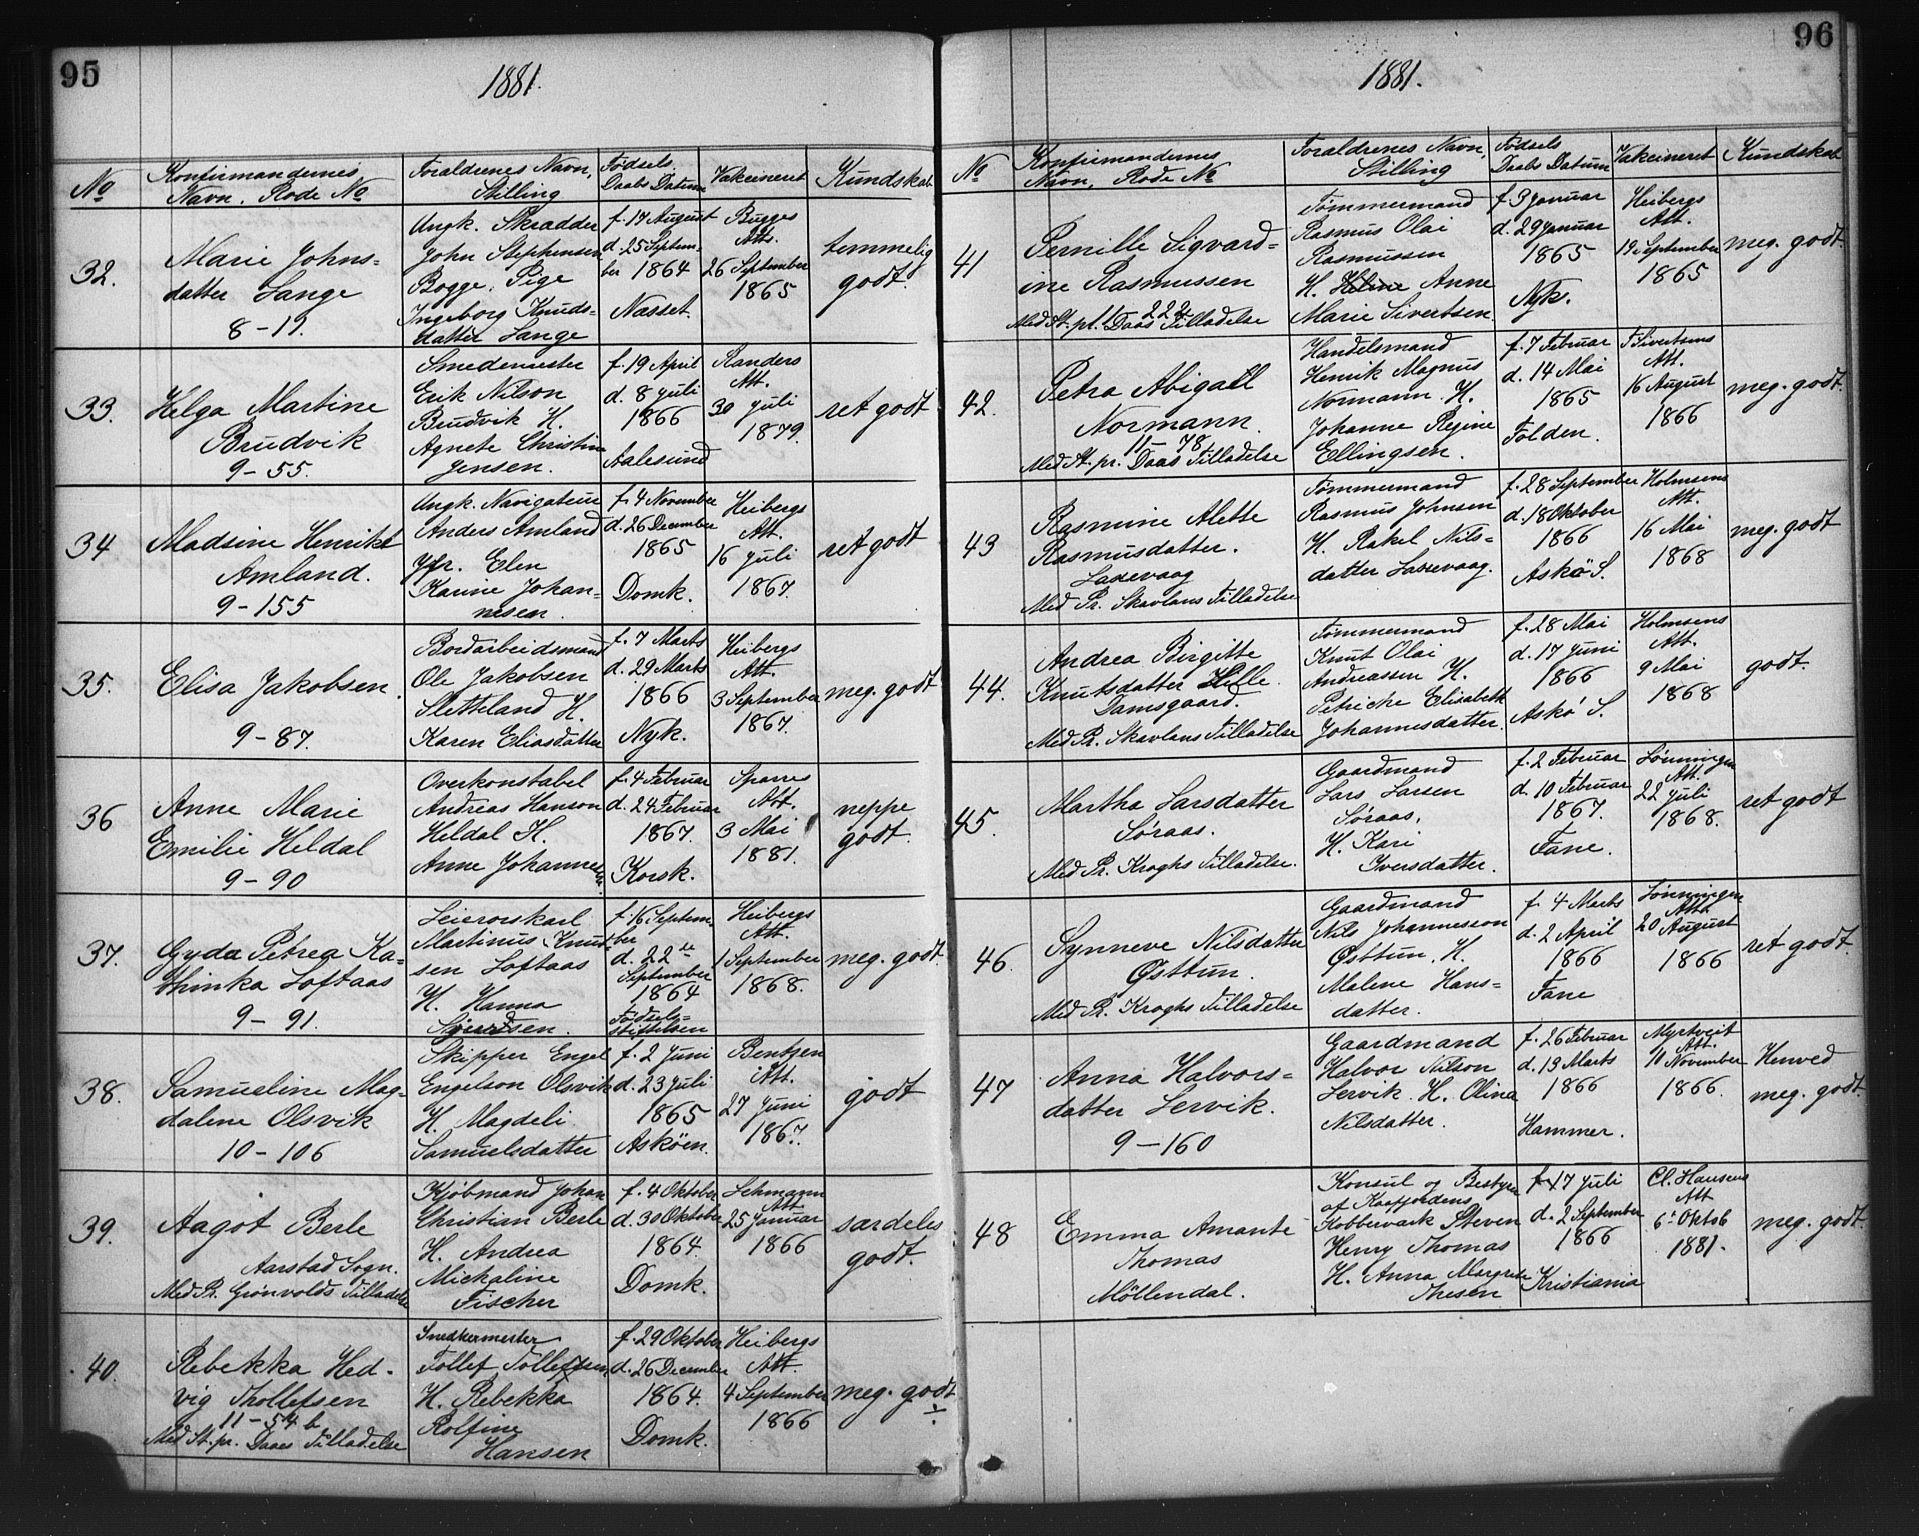 95
1881.
No
Konfirmandernes
Navn, Rode No
Foraldrenes Navn,
Stilling
Fødsels
Daabs Datum
Vakcineret
Kundskab
32.
Marie Johns=
datter Lange
8-19.
Ungk. Skrædder
John Stephensen
Bogge, Pige
Ingeborg Knuds=
datter Lange
f. 17 August
d. 25 Septem=
ber 1864
Næsset.
Bugges
Att.
26 September
1865
temmelig
godt.
33.
Helga Martine
Brudvik
9-55.
Smedemester
Erik Nilson
Brudvik H.
Agnete Christin
Jensen.
f. 19 April
d. 8 Juli
1866
Aalesund
Randers
Att.
30 Juli
1879.
ret godt
34
Madsine Henrikt
Amland.
9-155
Ungk. Navigateur
Anders Amland
Jfr. Elen
Karine Johan=
nesen
f. 4 November
d. 26 December
1865
Domk.
Heibergs
Att.
16 Juli
1867.
ret godt
35.
Elisa Jakobsen.
9-87.
Bordarbeidsmand
Ole Jakobsen
Sletteland H.
Karen Eliasdatter
f. 7 Marts
d. 29 Marts
1866
Nyk.
Heibergs
Att.
3 September
1867.
meg. godt
36
Anne Marie
Emilie Heldal
9-90
Overkonstabel
Andreas Hanson
Heldal H.
Anne Johannesdr.
f. 4 Februar
d. 24 Februar
1867.
Korsk.
Sparres
Att.
3 Mai
1881.
neppe
godt.
37.
Gyda Petrea Ka=
thinka Loftaas
9-91.
Leierorskarl
Martinus Knut
sen Loftaas
H. Hanna
Sjurdsen.
f. 16 Septem=
ber
d. 22de
September
1864
Fødsels=
stiftelsen
Heibergs
Att.
1 September
1868.
meg. godt
38.
Samueline Mag=
dalene Olsvik
10-106
Skipper Engel
Engelson Olsvik
H. Magdeli
Samuelsdatter
f. 2 Juni
d. 23 Juli
1865
Askøen.
Bentzen
Att.
27 Juni
1867.
godt
39.
Aagot Berle
Aarstad Sogn.
Med Pr. Grønvolds Tilladelse
Kjøbmand Johan
Christian Berle
H. Andrea
Mickaline
Fischer
f. 4 Oktober
d. 30 Oktober
1864.
Domk.
Lehmann
Att
25 Januar
1866
særdeles
godt.
40.
Rebekka Hed=
vig Thollefsen
11-54 b
Med St. pr. Daaes Tilladelse
Snedkermester
Tollef Tollefsen
H. Rebekka
Rolfine
Hansen
f. 29 Oktober
d. 26 December
1864.
Domk.
Heibergs
Att.
4 September
1866
meg. godt
÷
96
1881.
No
Konfirmandernes
Navn, Rode No
Foraldrenes Navn,
Stilling
Fødsels
Daabs Datum
Vakcineret
Kundskab
41
Pernille Sigvard=
ine Rasmussen
1-222
Med St. pr. Daas Tilladelse
Tømmermand
Rasmus Olai
Rasmussen
H. Anne
Marie Sivertsen
f. 3 Januar
d. 29 Januar
1865
Nyk.
Heibergs
Att.
19 September
1865
meg. godt
42.
Petra Abigael
Normann.
11-78
Med St. pr. Daas Tilladelse
Handelsmand
Henrik Magnus
Normann H.
Johanne Regine
Ellingsen.
f. 7 Februar
d. 14 Mai
1865
Folden.
T Sivertsens
Att.
16 August
1866
meg. godt.
43
Rasmine Alette
Rasmusdatter.
Laxevaag
Med Pr. Skavlans Tilladelse
Tømmermand
Rasmus Johnsen
H. Rakel Nils=
datter Laxevaag.
f. 28 September
d. 18 Oktober
1866
Askø S.
Holmsens
Att.
16 Mai
1868
meg. godt
44.
Andrea Birgitte
Knutsdatter Hille.
Damsgaard.
Med Pr. Skavlans Tilladelse
Tømmermand
Knut Olai
Andreassen H.
Petriche Elisabeth
Johannesdatter.
f. 28 Mai
d. 17 Juni
1866
Askø S.
Holmsens
Att.
9 Mai
1868
godt.
45.
Martha Larsdatter
Søraas.
Med Pr. Kroghs Tilladelse.
Gaardmand
Lars Larsen
Søraas,
H. Kari
Iversdatter.
f. 2 Februar
d. 10 Februar
1867.
Fane.
Lønningen
Att.
22 Juli
1868.
ret godt
46.
Synneve Nilsdatter
Østtun.
Med Pr. Kroghs Tilladelse
Gaardmand
Nils Johannesson
Østtun, H.
Malene Hans=
datter.
f. 4 Marts
d. 2 April
1866
Fane
Lønningen
Att.
20 August
1866
ret godt.
47
Anna Halvors=
datter Lervik.
9-160
Gaardmand
Helvor Nilson
Lervik H. Olina
Nilsdatter.
f. 26 Februar
d. 13 Marts
1866
Hammer.
Myrtveit
Att.
10 November
1866.
Henved
meg. godt.
48
Emma Amante
Thomas
Møllendal.
Konsul og Bestyrer
af Kaafjordens
Kobberværk Steven
Henry Thomas
H. Anna Margrete
Thesen
f. 17 Juli
d. 2 September
1866
Kristiania
Cl. Hansens
Att
6te Oktob
1881.
meg. godt.